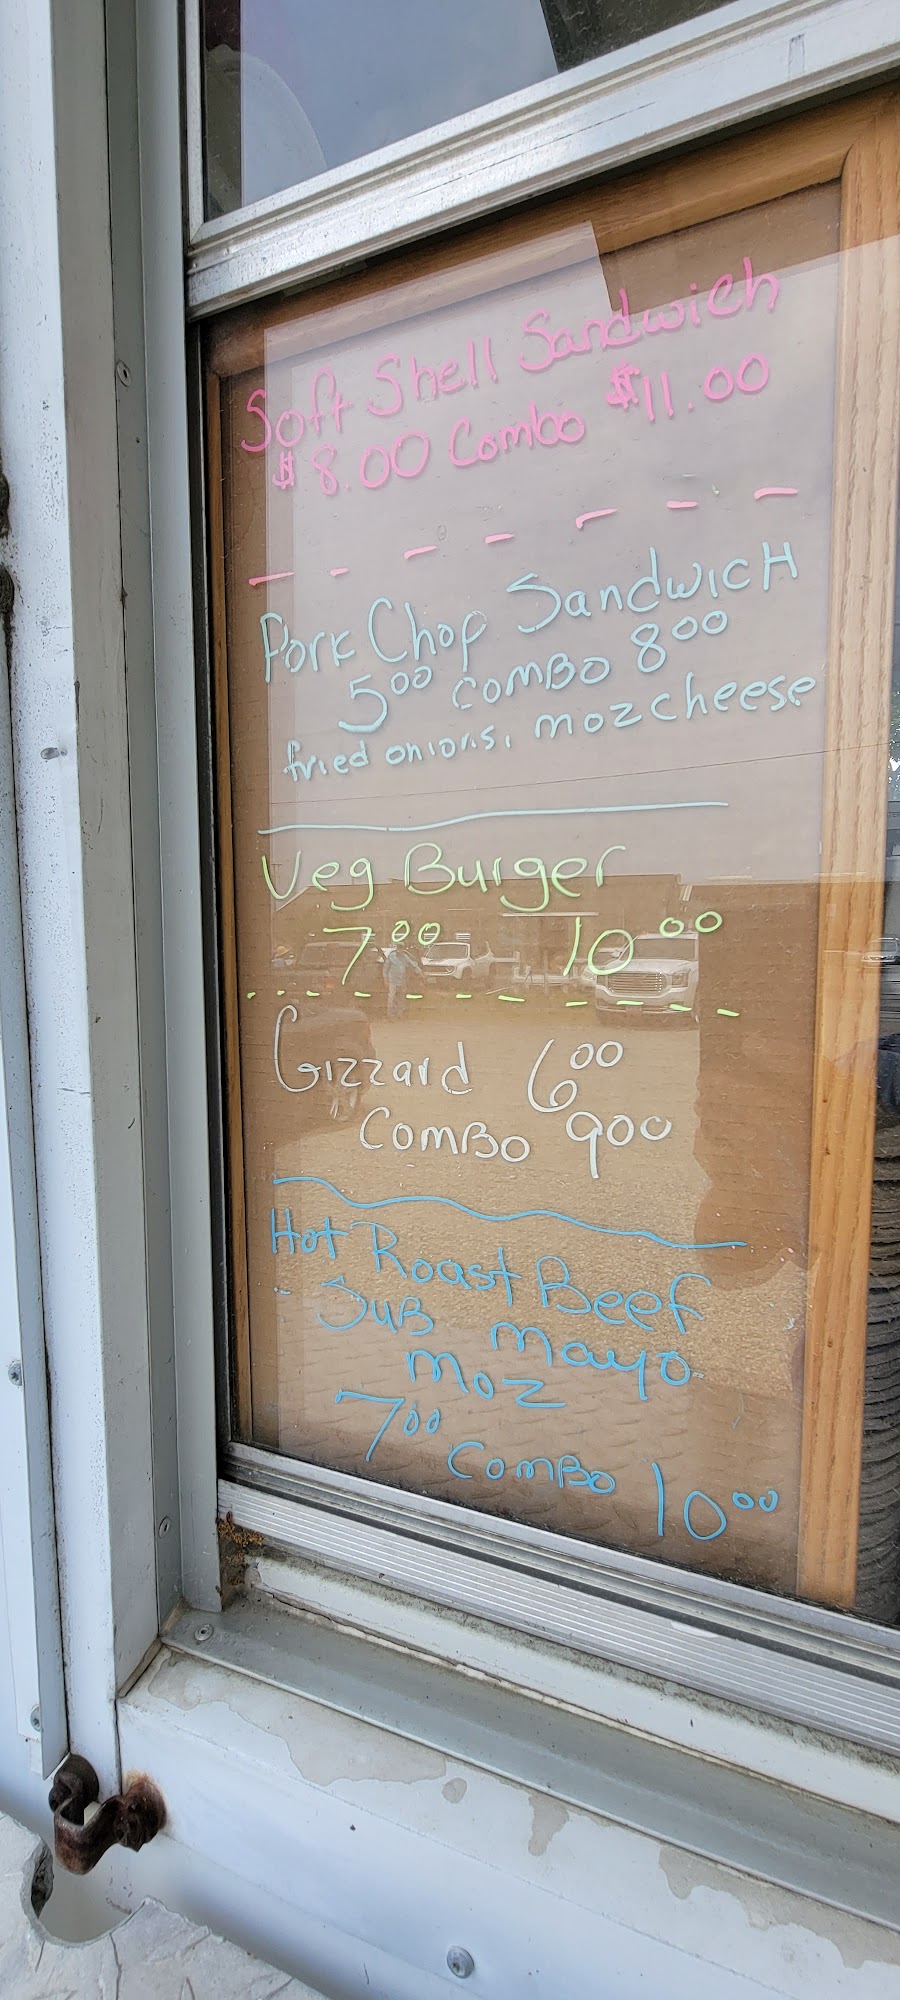 Soft Shell Sandwich
$8.00 Combo $11.00
Pork Chop Sandwich
5.00 Combo 8.00
fried onions, moz cheese
Veg Burger
7.00 10.00
Gizzard 6.00
Combo 9.00
Hot Roast Beef
Sub mayo
moz
7.00 Combo 10.00